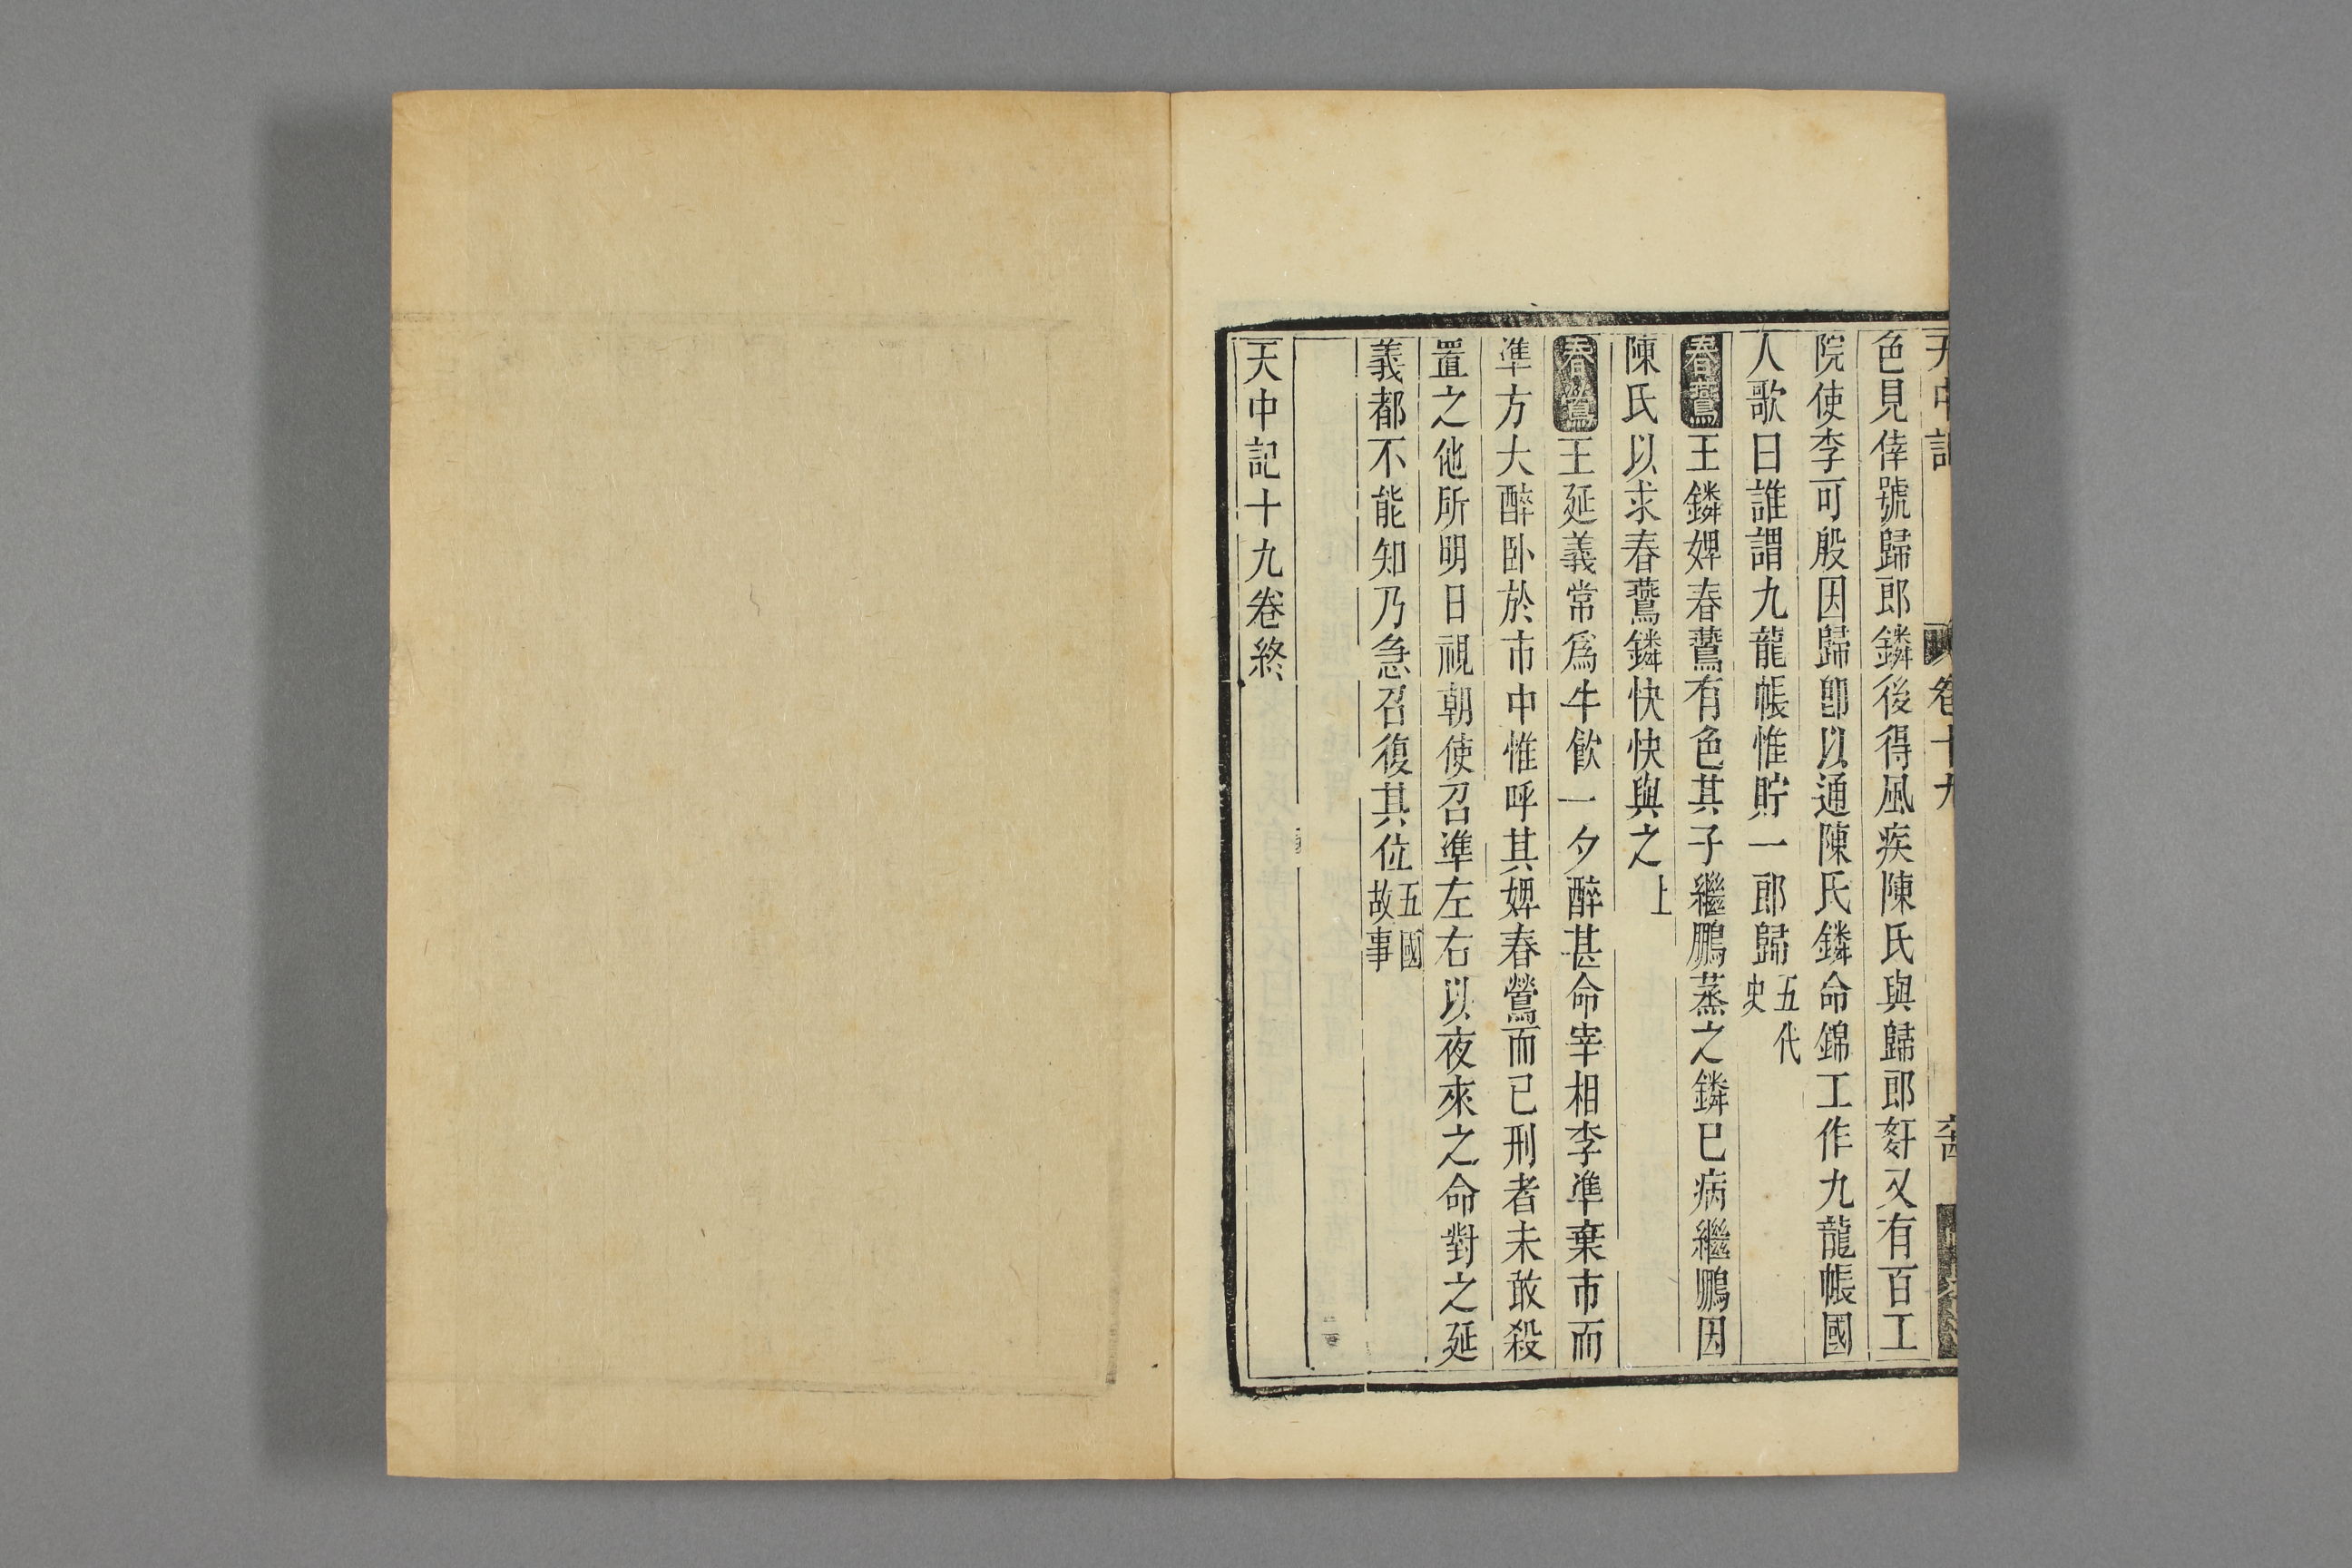 天中記 卷十九
色見倖號歸郎鏻後得風疾陳氏與歸郎姧又有百工
院使李可殷因歸郎以通陳氏鏻命錦工作九龍帳國
人歌曰誰謂九龍帳惟貯一郎歸五代史
春鷰王鏻婢春鷰有色其子繼鵬蒸之鏻已病繼鵬因
陳氏以求春鷰鏻怏怏與之上
春鶯王延義常爲牛飲一夕醉甚命宰相李準棄市而
準方大醉臥於市中惟呼其婢春鶯而已刑者未敢殺
置之他所明日視朝使召準左右以夜來之命對之延
義都不能知乃急召復其位五國故事
天中記十九卷終